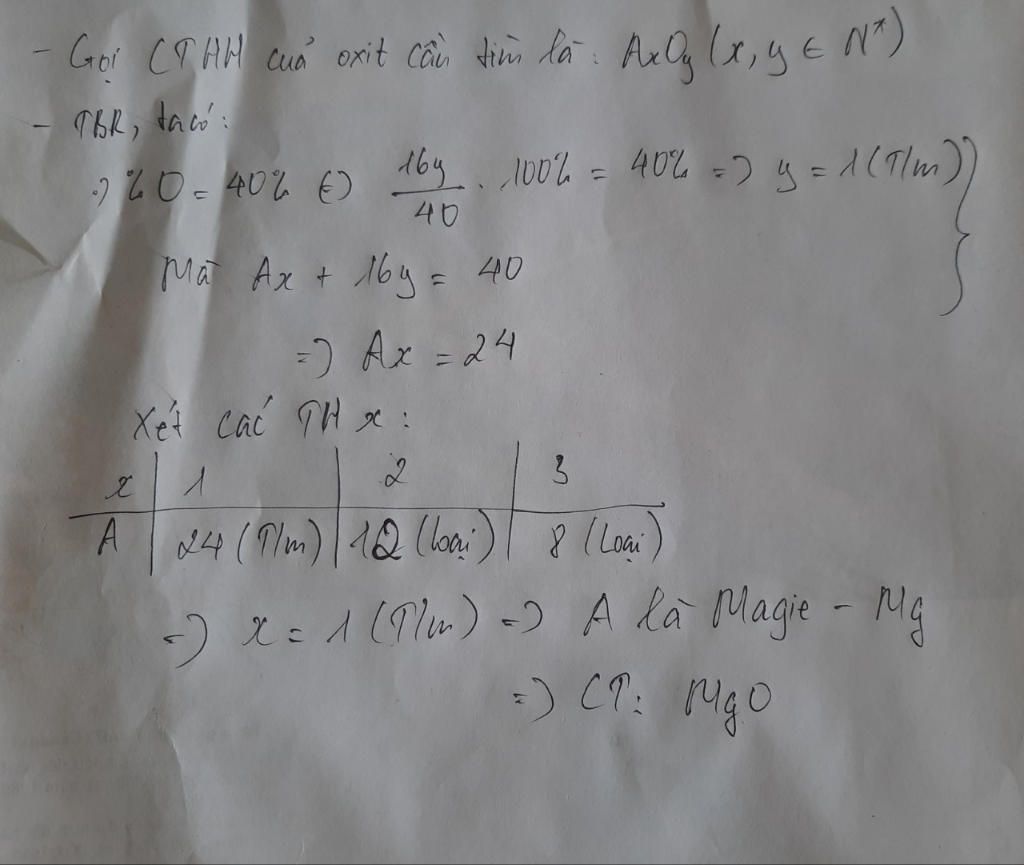 - Gọi CTHH cuả oxit cần tìm là: AxOy (x, y ∈ N*)
- TBR, ta có:
=> %O = 40% <=> 16y/40 . 100% = 40% => y = 1 (T/m) }
Mà Ax + 16y = 40
=> Ax = 24
Xét các TH x:
x | 1 | 2 | 3
A | 24 (T/m) | 12 (loại) | 8 (Loại)
=> x = 1 (T/m) => A là Magie - Mg
=> CT: MgO